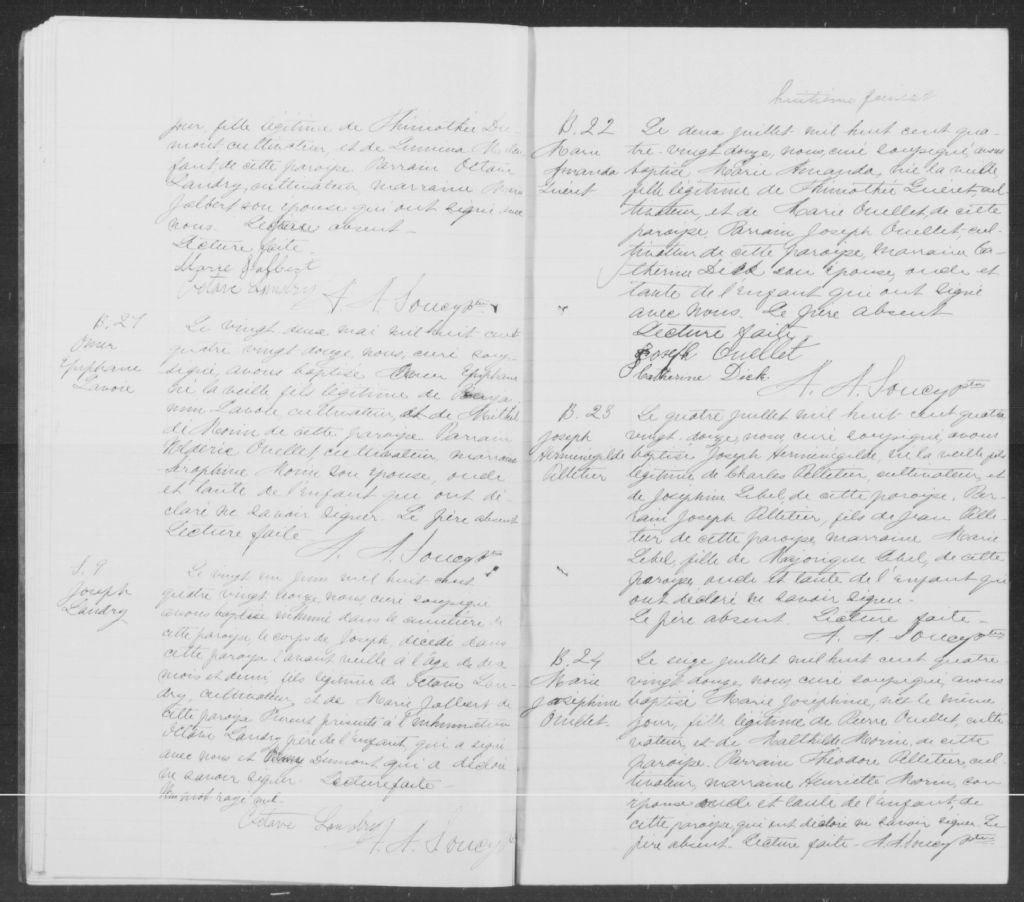 jour, fille légitime de Thimothée Du-
mont cultivateur, et de
fant de cette paroisse. Parrain Octave
Landry, cultivateur, marraine Marie
Jalbert son épouse qui ont signé avec
nous. Le père absent -
Lecture faite -
Marie Jalbert
Octave Landry
A. A. Soucy ptre
B. 21
Omer
Epiphane
Lavoie
Le vingt deux mai mil huit cent
quatre vingt douze, nous, curé sous-
signé, avons baptisé Omer Epiphane
né la veille, fils légitime de Benja-
min Lavoie cultivateur, et de Mathil
de Morin de cette paroisse. Parrain
Ouellet cultivateur, marraine
Séraphine Morin son épouse, oncle
et tante de l'enfant qui ont dé
claré ne savoir signer. Le père absent
Lecture faite
A. A. Soucy ptre
S. 9
Joseph
Landry
Le vingt un juin mil huit cent
quatre vingt douze, nous, curé soussigné
avons baptisé inhumé dans le cimetière de
cette paroisse le corps de Joseph, décédé dans
cette paroisse l'avant veille à l'âge de deux
mois et demi, fils légitime de Octave Lan-
dry, cultivateur, et de Marie Jalbert de
cette paroisse. Furent présents à l'inhumation
Octave Landry père de l'enfant, qui a signé
avec nous et Dumont qui a déclaré
ne savoir signer. Lecture faite -
Un mot rayé nul.
Octave Landry
A. A. Soucy ptre
huitième feuillet
B. 22
Marie
Amanda
Guéret
Le deux juillet mil huit cent qua-
tre-vingt douze, nous, curé soussigné, avons
baptisé Marie Amanda, née la veille,
fille légitime de Thimothé Guéret, cul-
tivateur, et de Marie Ouellet, de cette
paroisse. Parrain Joseph Ouellet, cul-
tivateur de cette paroisse, marraine Ca-
therine Dick son épouse, oncle et
tante de l'enfant qui ont signé
avec nous. Le père absent
Lecture faite,
Joseph Ouellet
Catherine Dick
A. A. Soucy ptre
B. 23
Joseph
Herménégilde
Pelletier
Le quatre juillet mil huit cent quatre
vingt-douze, nous, curé soussigné, avons
baptisé Joseph Herménégilde né la veille fils
légitime de Charles Pelletier, cultivateur, et
de Joséphine Lebel, de cette paroisse. Par-
rain Joseph Pelletier, fils de Jean Pelle-
tier de cette paroisse, marraine Marie
Lebel, fille de Majorique Lebel, de cette
paroisse, oncle et tante de l'enfant qui
ont déclaré ne savoir signer -
Le père absent. Lecture faite -
A. A. Soucy ptre
B. 24
Marie
Joséphine
Ouellet
Le seize juillet mil huit cent quatre
vingt douze, nous, curé soussigné, avons
baptisé Marie Joséphine, née le même
jour, fille légitime de Pierre Ouellet, culti
vateur, et de Malthilde Morin, de cette
paroisse. Parrain Théodore Pelletier, cul-
tivateur, marraine Henriette Morin, son
épouse oncle et tante de l'enfant, de
cette paroisse, qui ont déclaré ne savoir signer. Le
père absent. Lecture faite - A. A. Soucy ptre